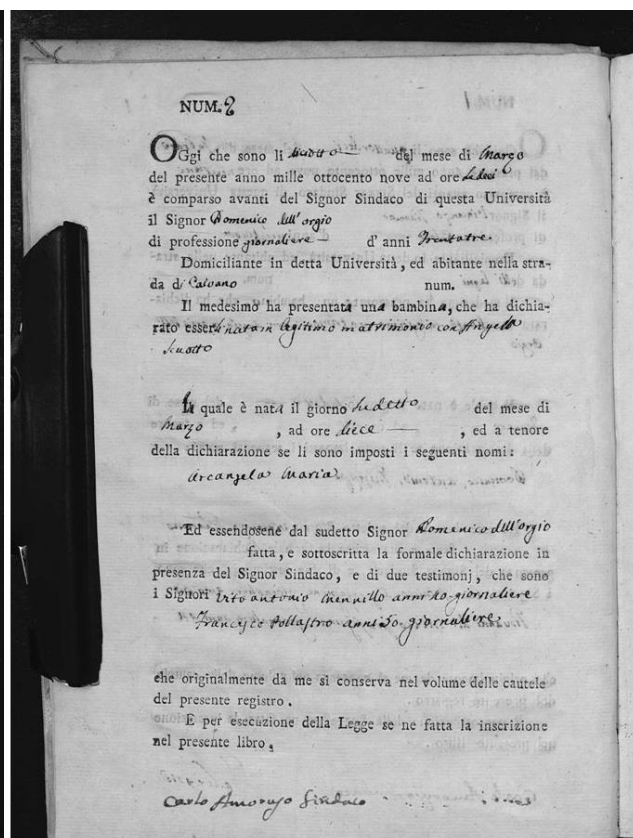 NUM. 2
OGgi che sono li dieciotto del mese di Marzo
del presente anno mille ottocento nove ad ore sedeci
è comparso avanti del Signor Sindaco di questa Università
il Signor Domenico dell'orgio
di professione giornaliere d' anni Trentatre
Domiciliante in detta Università, ed abitante nella stra-
da di Caivano num.
Il medesimo ha presentata una bambina, che ha dichia-
rato esserli nata in legitimo matrimonio con
La quale è nata il giorno sudetto del mese di
Marzo, ad ore diece, ed a tenore
della dichiarazione se li sono imposti i seguenti nomi:
Arcangela Maria
Ed essendosene dal sudetto Signor Domenico dell'orgio
fatta, e sottoscritta la formale dichiarazione in
presenza del Signor Sindaco, e di due testimonj, che sono
i Signori Vito antonio anni giornaliere
Francesco Pollastro anni 50 giornaliere.
che originalmente da me si conserva nel volume delle cautele
del presente registro.
E per esecuzione della Legge se ne fatta la inscrizione
nel presente libro.
Carlo Amoruso Sindaco